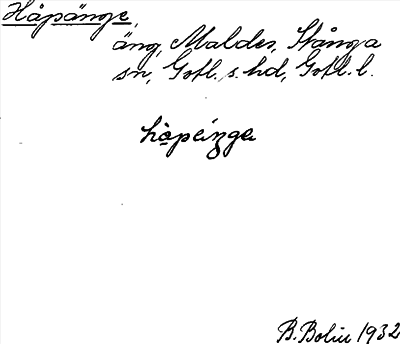 Håpänge,
äng, Maldes, Stånga
sn, Gotl. s. hd, Gotl. l.
B. Bolin 1932